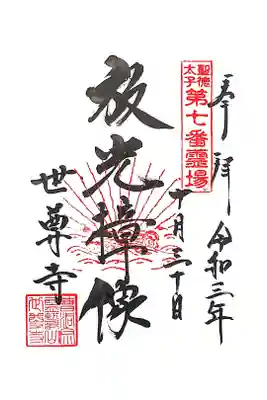 奉拝
令和三年
十月三十日
聖徳
太子
第七番霊場
放光樟像
世尊寺